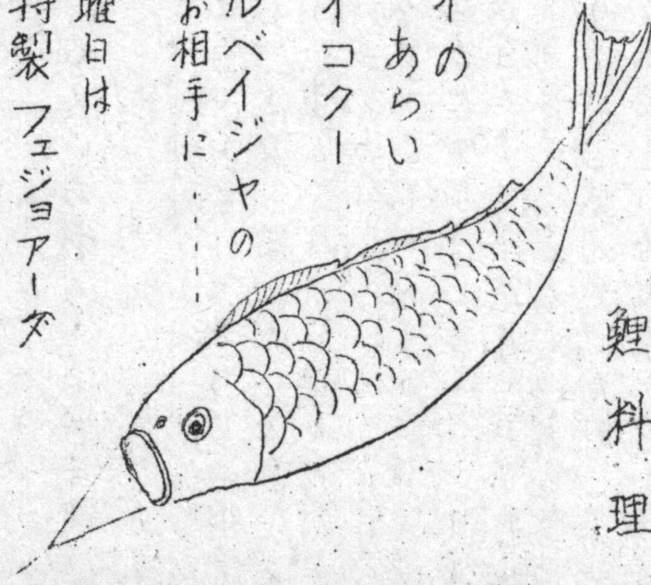 鯉料理
イの
あらい
イコクー
ルベイジャの
お相手に……
曜日は
特製 フェジョアーダ